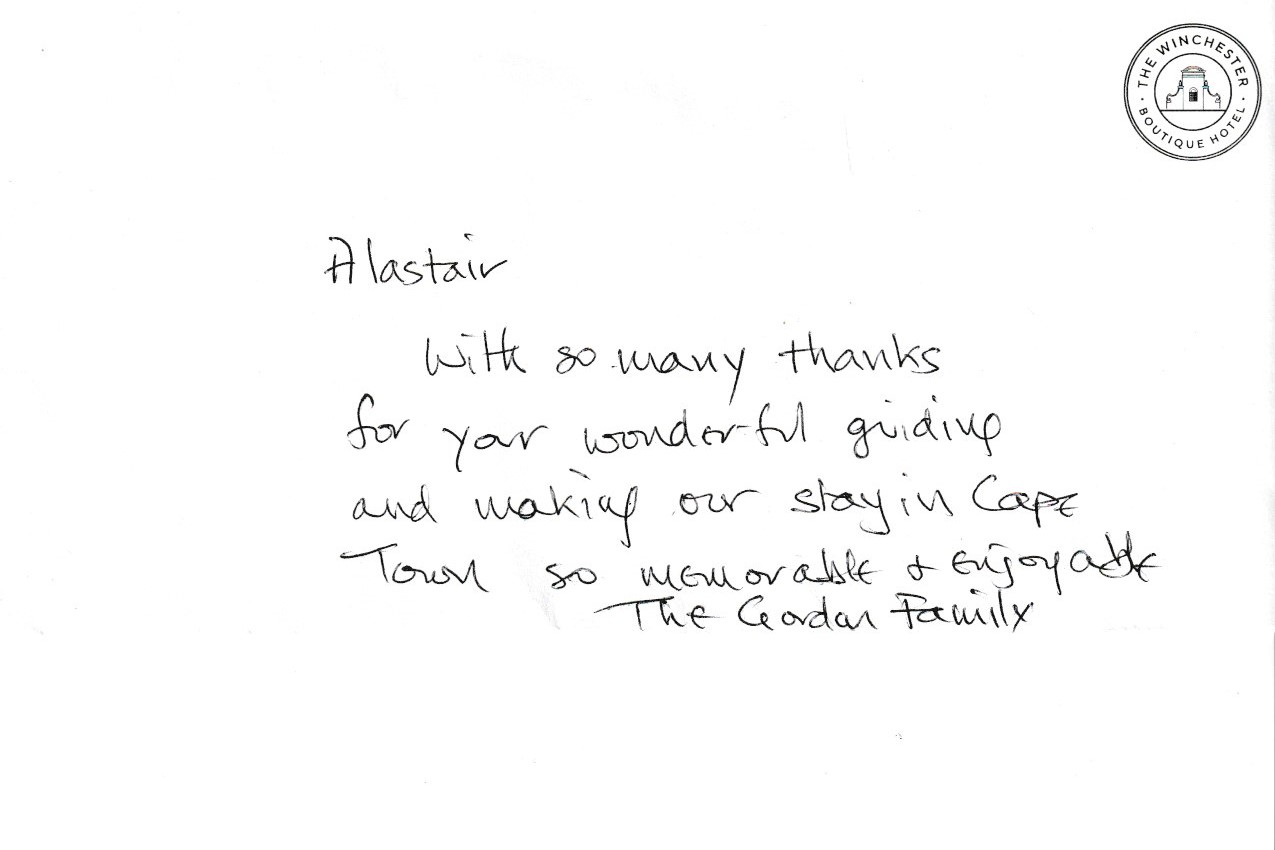 THE WINCHESTER
BOUTIQUE HOTEL
Alastair
With so many thanks
for your wonderful guiding
and making our stay in Cape
Town so memorable & enjoyable
The Gordon Family